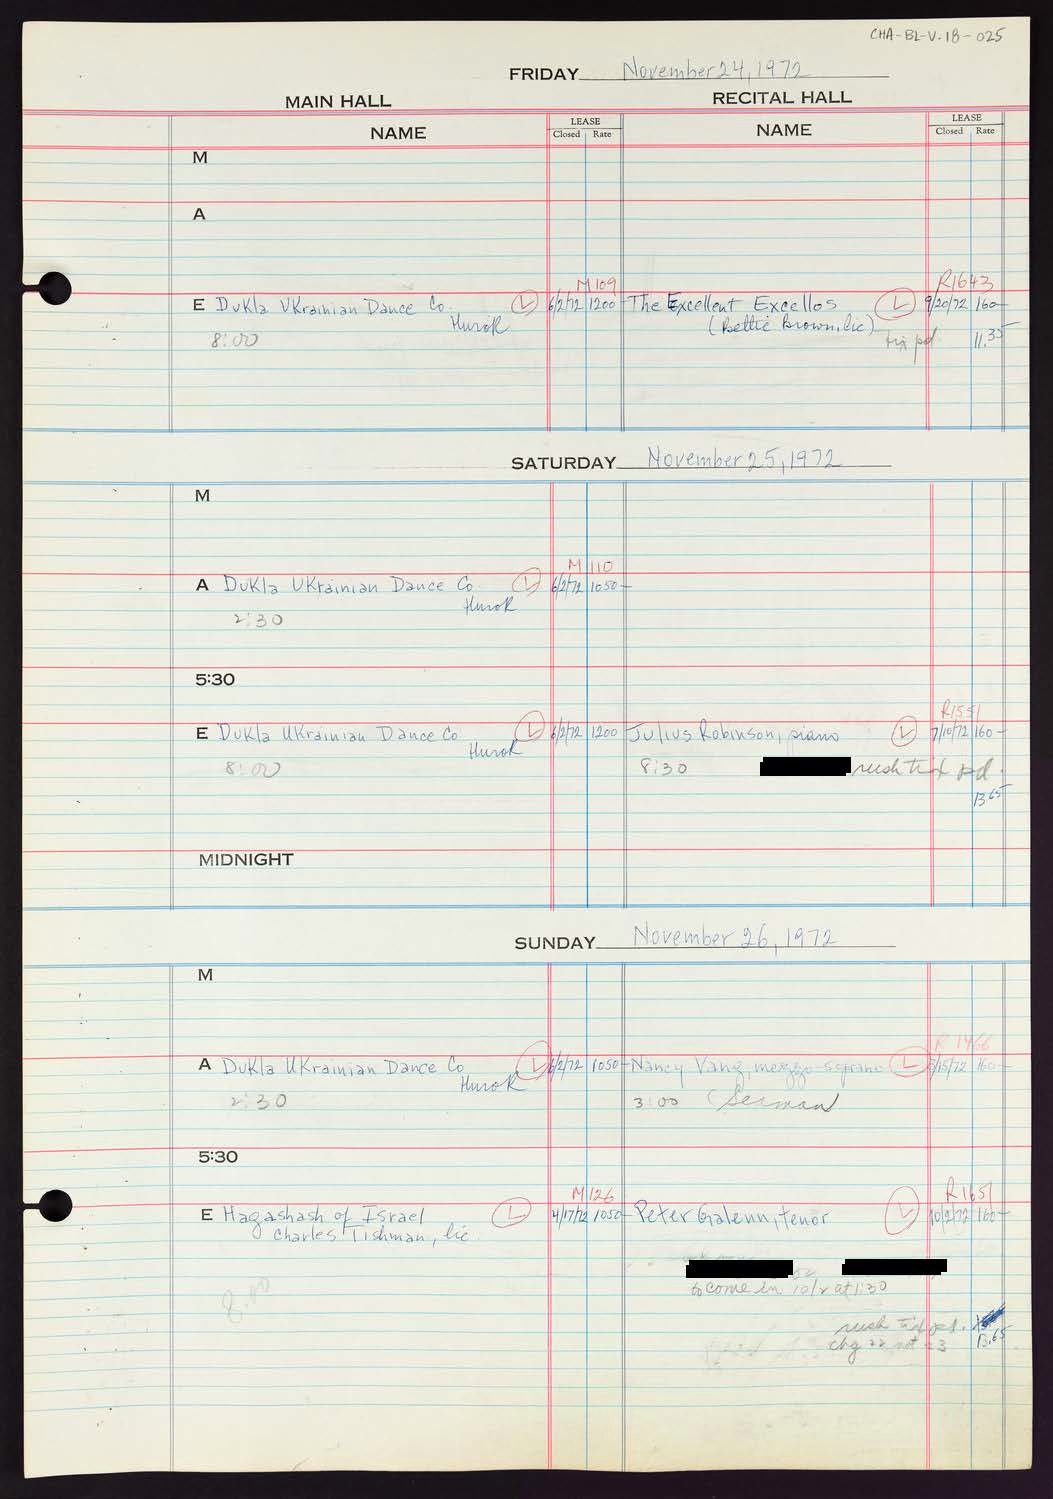 CHA-BL-V.18-025
FRIDAY November 24, 1972
MAIN HALL RECITAL HALL
NAME LEASE Closed Rate NAME LEASE Closed Rate
M
A
M109 R1643
E Dukla Ukrainian Dance Co. L 6/2/72 1200- The Excellent Excellos L 9/20/72 160-
Hurok (Bettie Brown, lic)
8:00 tix pd. 11.35
SATURDAY November 25, 1972
M
M110
A Dukla Ukrainian Dance Co L 6/2/72 1050-
Hurok
2:30
5:30
R1551
E Dukla Ukrainian Dance Co L 6/2/72 1200 Julius Robinson, piano L 7/10/72 160-
Hurok
8:00 8:30 rush tix pd.
13.65
MIDNIGHT
SUNDAY November 26, 1972
M
R1466
A Dukla Ukrainian Dance Co L 6/2/72 1050- Nancy Vang, mezzo-soprano L /15/72 160-
Hurok
2:30 3:00
5:30
M126 R1651
E Hagashash of Israel L 4/17/72 1050- Peter Galenn, tenor L 10/2/72 160-
Charles Tishman, lic.
to come in 10/2 at 1:30
8:00
rush tix pd.
chg 22 not 23 13.65